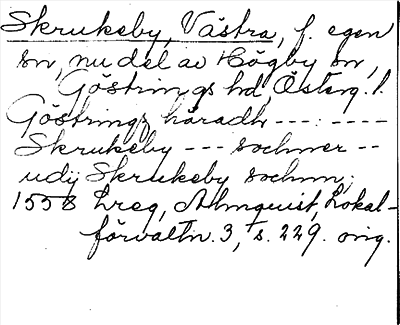 Skrukeby, Västra, f. egen
sn, nu del av Högby sn,
Göstrings hd, Österg. l.
Göstrings häradh ---:----
Skrukeby --- sochner --
udij Skrukeby sochnn;
1558 Lreg, Almquist, Lokal-
förvaltn. 3, s. 229. orig.